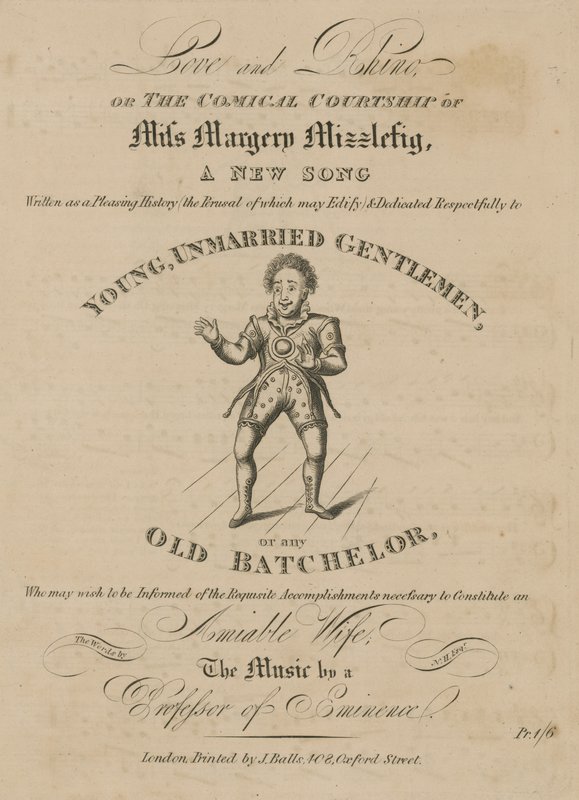 Love and Rhino,
OR THE COMICAL COURTSHIP OF
Miſs Margery Mizzlefig,
A NEW SONG
Written as a Pleasing History (the Perusal of which may Edify) & Dedicated Respectfully to
YOUNG, UNMARRIED GENTLEMEN,
or any
OLD BATCHELOR,
Who may wish to be Informed of the Requisite Accomplishments neceſsary to Constitute an
Amiable Wife;
The Words by
N. H. Esqr.
The Music by a
Profeſsor of Eminence.
Pr. 1/6
London, Printed by J. Balls, 408, Oxford Street.